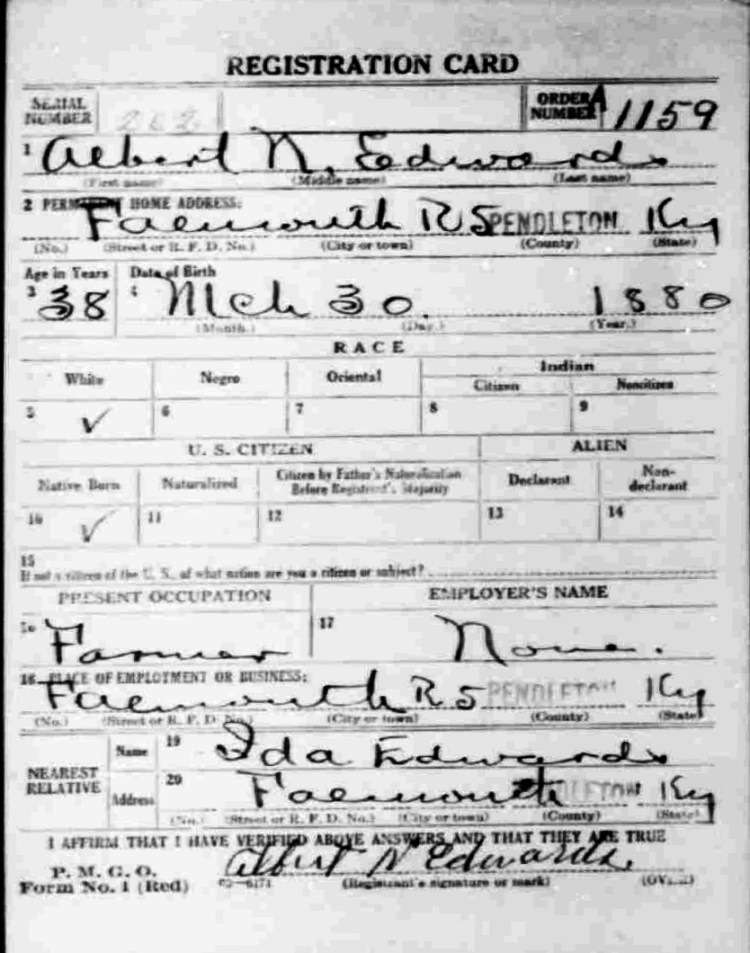 REGISTRATION CARD
SERIAL NUMBER 262 ORDER NUMBER A 1159
1 Albert N. Edwards
(First name) (Middle name) (Last name)
2 PERMANENT HOME ADDRESS:
Falmouth R 5 PENDLETON Ky
(No.) (Street or R. F. D. No.) (City or town) (County) (State)
Age in Years Date of Birth
3 38 4 Mch 30. 1880
(Month.) (Day.) (Year.)
RACE
White Negro Oriental Indian
Citizen Noncitizen
5 ✓ 6 7 8 9
U. S. CITIZEN ALIEN
Native Born Naturalized Citizen by Father's Naturalization Before Registrant's Majority Declarant Non-declarant
10 ✓ 11 12 13 14
15
If not a citizen of the U. S., of what nation are you a citizen or subject?
PRESENT OCCUPATION EMPLOYER'S NAME
16 Farmer 17 None.
18 PLACE OF EMPLOYMENT OR BUSINESS:
Falmouth R 5 PENDLETON Ky
(No.) (Street or R. F. D. No.) (City or town) (County) (State)
NEAREST RELATIVE Name 19 Ida Edwards
Address 20 Falmouth PENDLETON Ky
(No.) (Street or R. F. D. No.) (City or town) (County) (State)
I AFFIRM THAT I HAVE VERIFIED ABOVE ANSWERS AND THAT THEY ARE TRUE
P. M. G. O.
Form No. 1 (Red) 03—6171 Albert N Edwards.
(Registrant's signature or mark) (OVER)